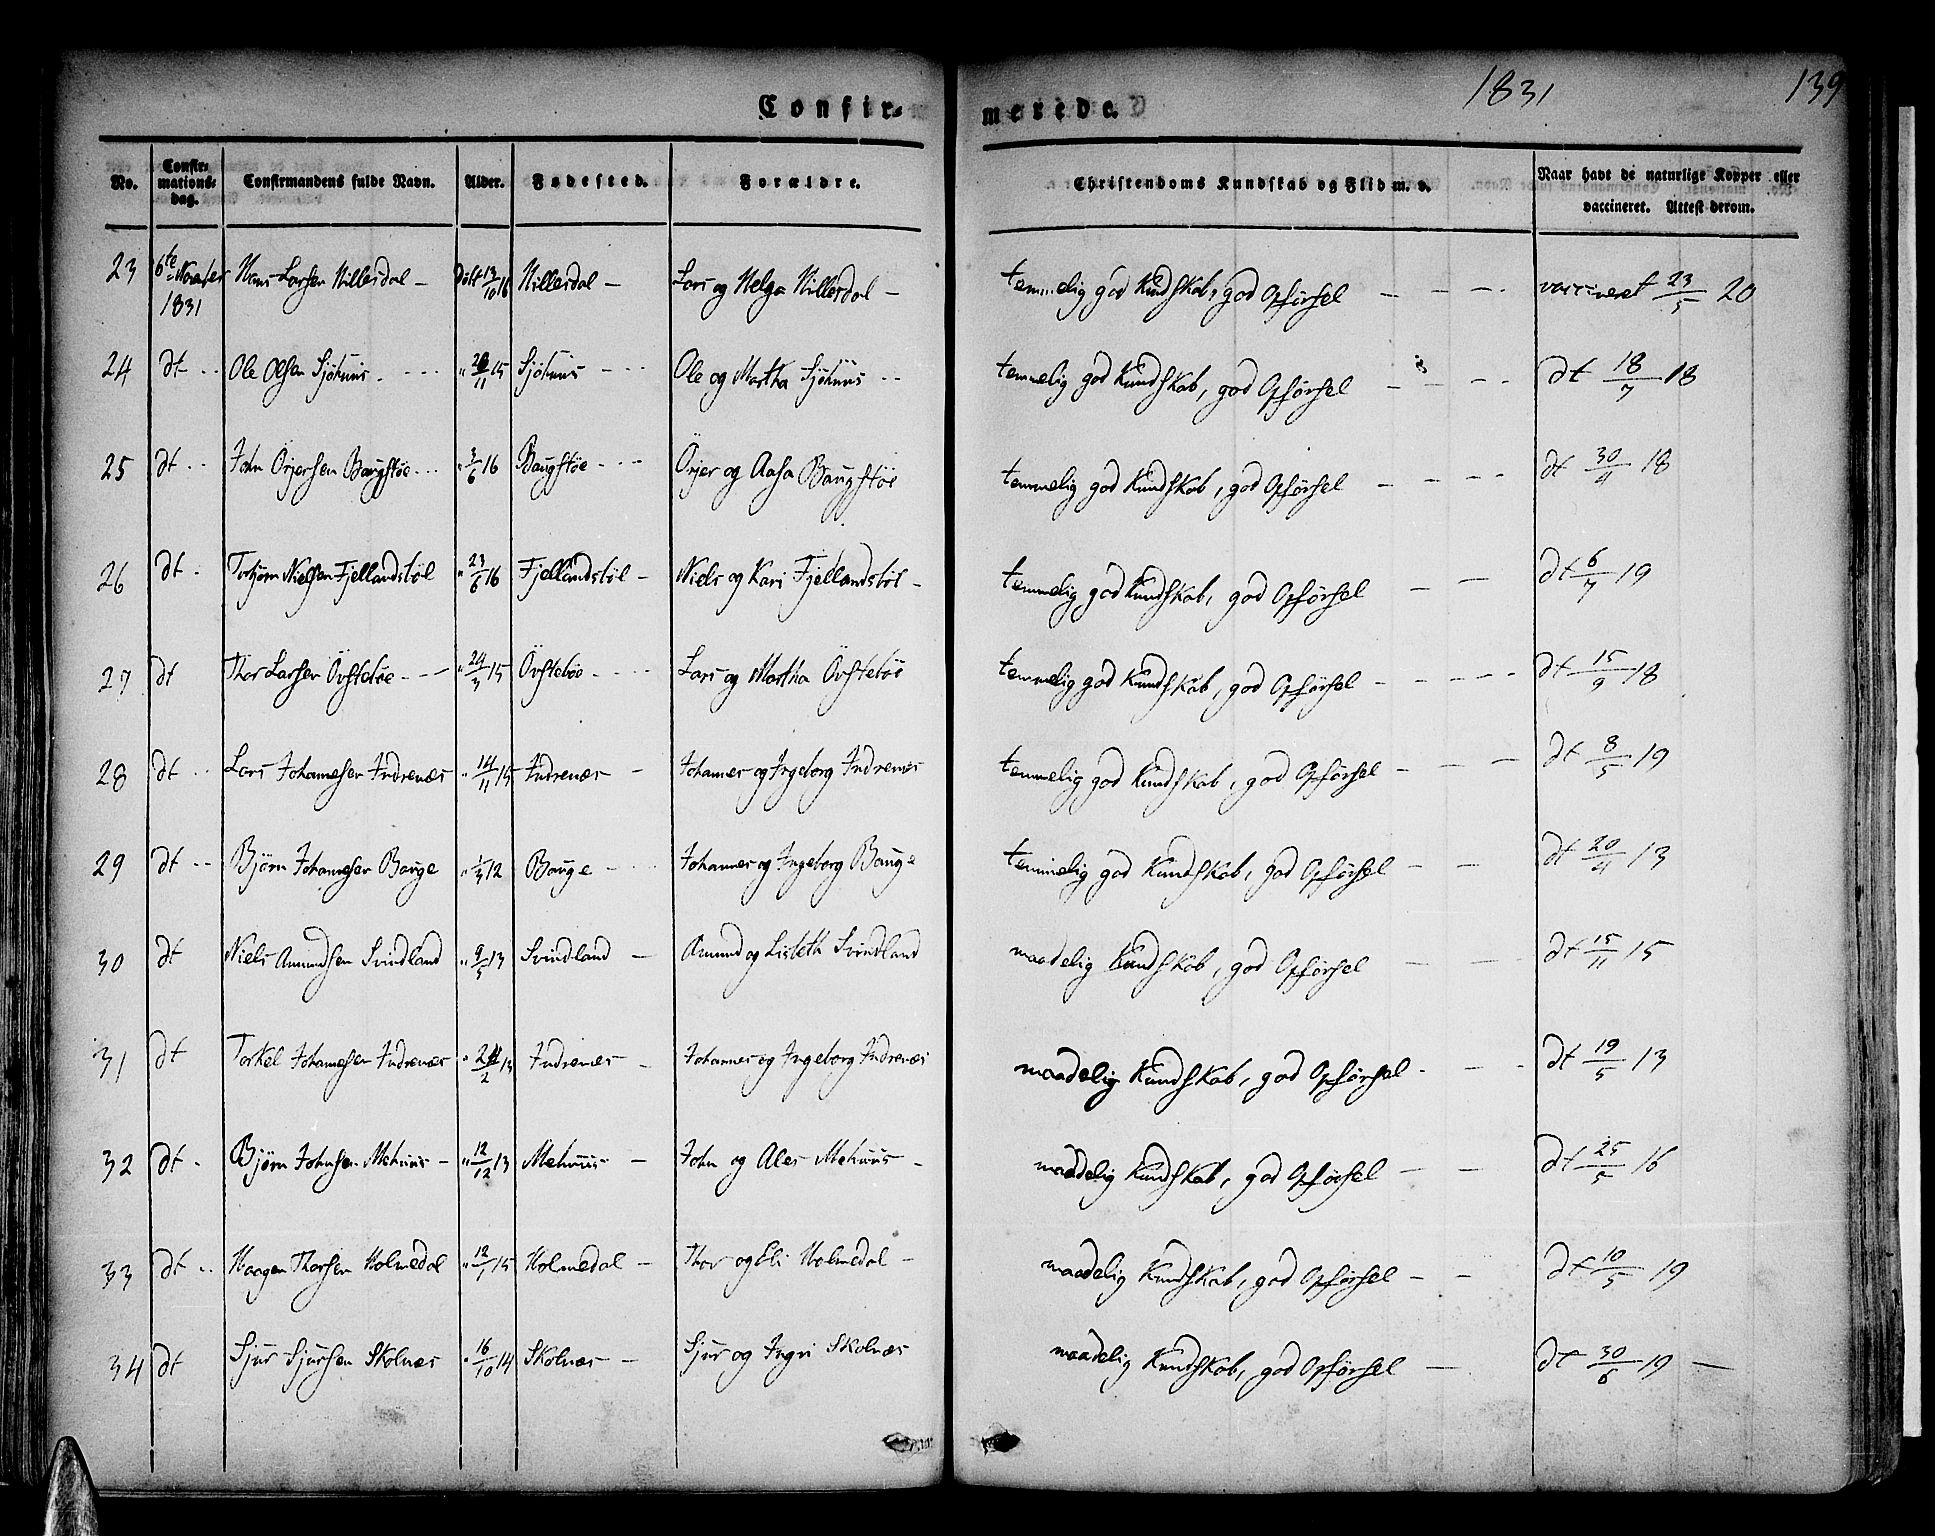 Confir-merede. 1831 139
No. Confirmations-dag. Confirmandens fulde Navn. Alder. Fødested. Forældre. Christendoms Kundskab og Flid m. v. Naar havt de naturlige Kopper eller vaccineret. Attest derom.
23 6te November 1831 Hans Larsen Hillesdal – Døbt 13/10 16 Hillesdal – Lars og Helga Hillesdal – temmelig god Kundskab, god Opförsel – – – vaccineret 23/5 20
24 dt Ole Olsen Sjöhuus " /11 15 Sjöhuus Ole og Martha Sjöhuus temmelig god Kundskab, god Opförsel – – – dt 18/7 18
25 dt John Örjersen Baugstöe " 3/6 16 Baugstöe Örjer og Aasa Baugstöe temmelig god Kundskab, god Opförsel – – – dt 30/4 18
26 dt Torbjörn Nielsen Fjellandstöl " 23/6 16 Fjellandstöl – Niels og Kari Fjellandstöl – temmelig god Kundskab, god Opförsel – – dt 6/7 19
27 dt Thor Larsen Övstebøe " 24/3 15 Övstebøe Lars og Martha Övstebøe temmelig god Kundskab, god Opförsel – – – dt 15/9 18
28 dt Lars Johannesen Indrenæs " 14/11 15 Indrenæs – Johannes og Ingeborg Indrenæs temmelig god Kundskab, god Opförsel – – – dt 8/5 19
29 dt Björn Johannesen Bauge " 1/3 12 Bauge – Johannes og Ingeborg Bauge temmelig god Kundskab, god Opförsel – – dt 20/4 13
30 dt Niels Amundsen Svindland " 9/5 13 Svindland – Amund og Lisbeth Svindland maadelig Kundskab, god Opförsel – – dt 15/11 15
31 dt Torkel Johannesen Indrenæs " /2 13 Indrenæs – Johannes og Ingeborg Indrenæs maadelig Kundskab, god Opförsel – – dt 19/5 13
32 dt Björn Johnsen Mehuus – " 12/12 13 Mehuus – John og Ales Mehuus – maadelig Kundskab, god Opförsel – – dt 25/5 16
33 dt Haagen Thorsen Holmedal " 12/1 15 Holmedal – Thor og Eli Holmedal – maadelig Kundskab, god Opförsel – – dt 10/5 19
34 dt Sjur Sjursen Skolnæs " 16/10 14 Skolnæs – Sjur og Ingri Skolnæs maadelig Kundskab, god Opförsel – dt 30/6 19 –